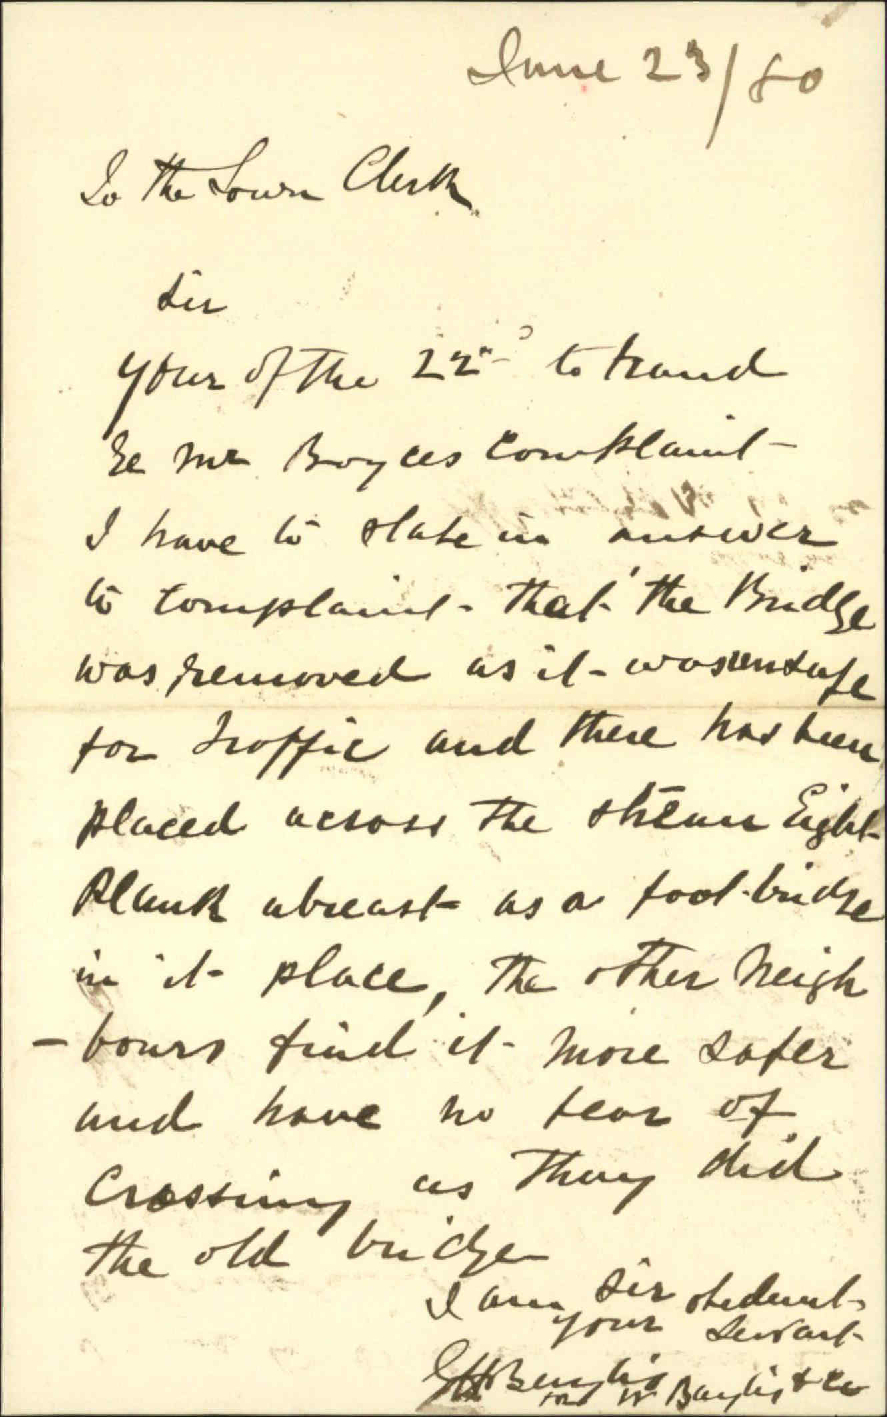 June 23/80
To the Town Clerk
Sir
Your of the 22nd to hand
Re Mr Boyces Complaint
I have to state in answer
to Complaint - that the Bridge
was removed as it was unsafe
for Traffic and there has been
placed across the stream Eight
Plank abreast as a foot-bridge
in it place, the other Neigh
-bours find it more safer
and have no fear of
Crossing as they did
the old bridge
I am Sir
your obedient
Servant
G H Bayliss
for W Bayliss & Co